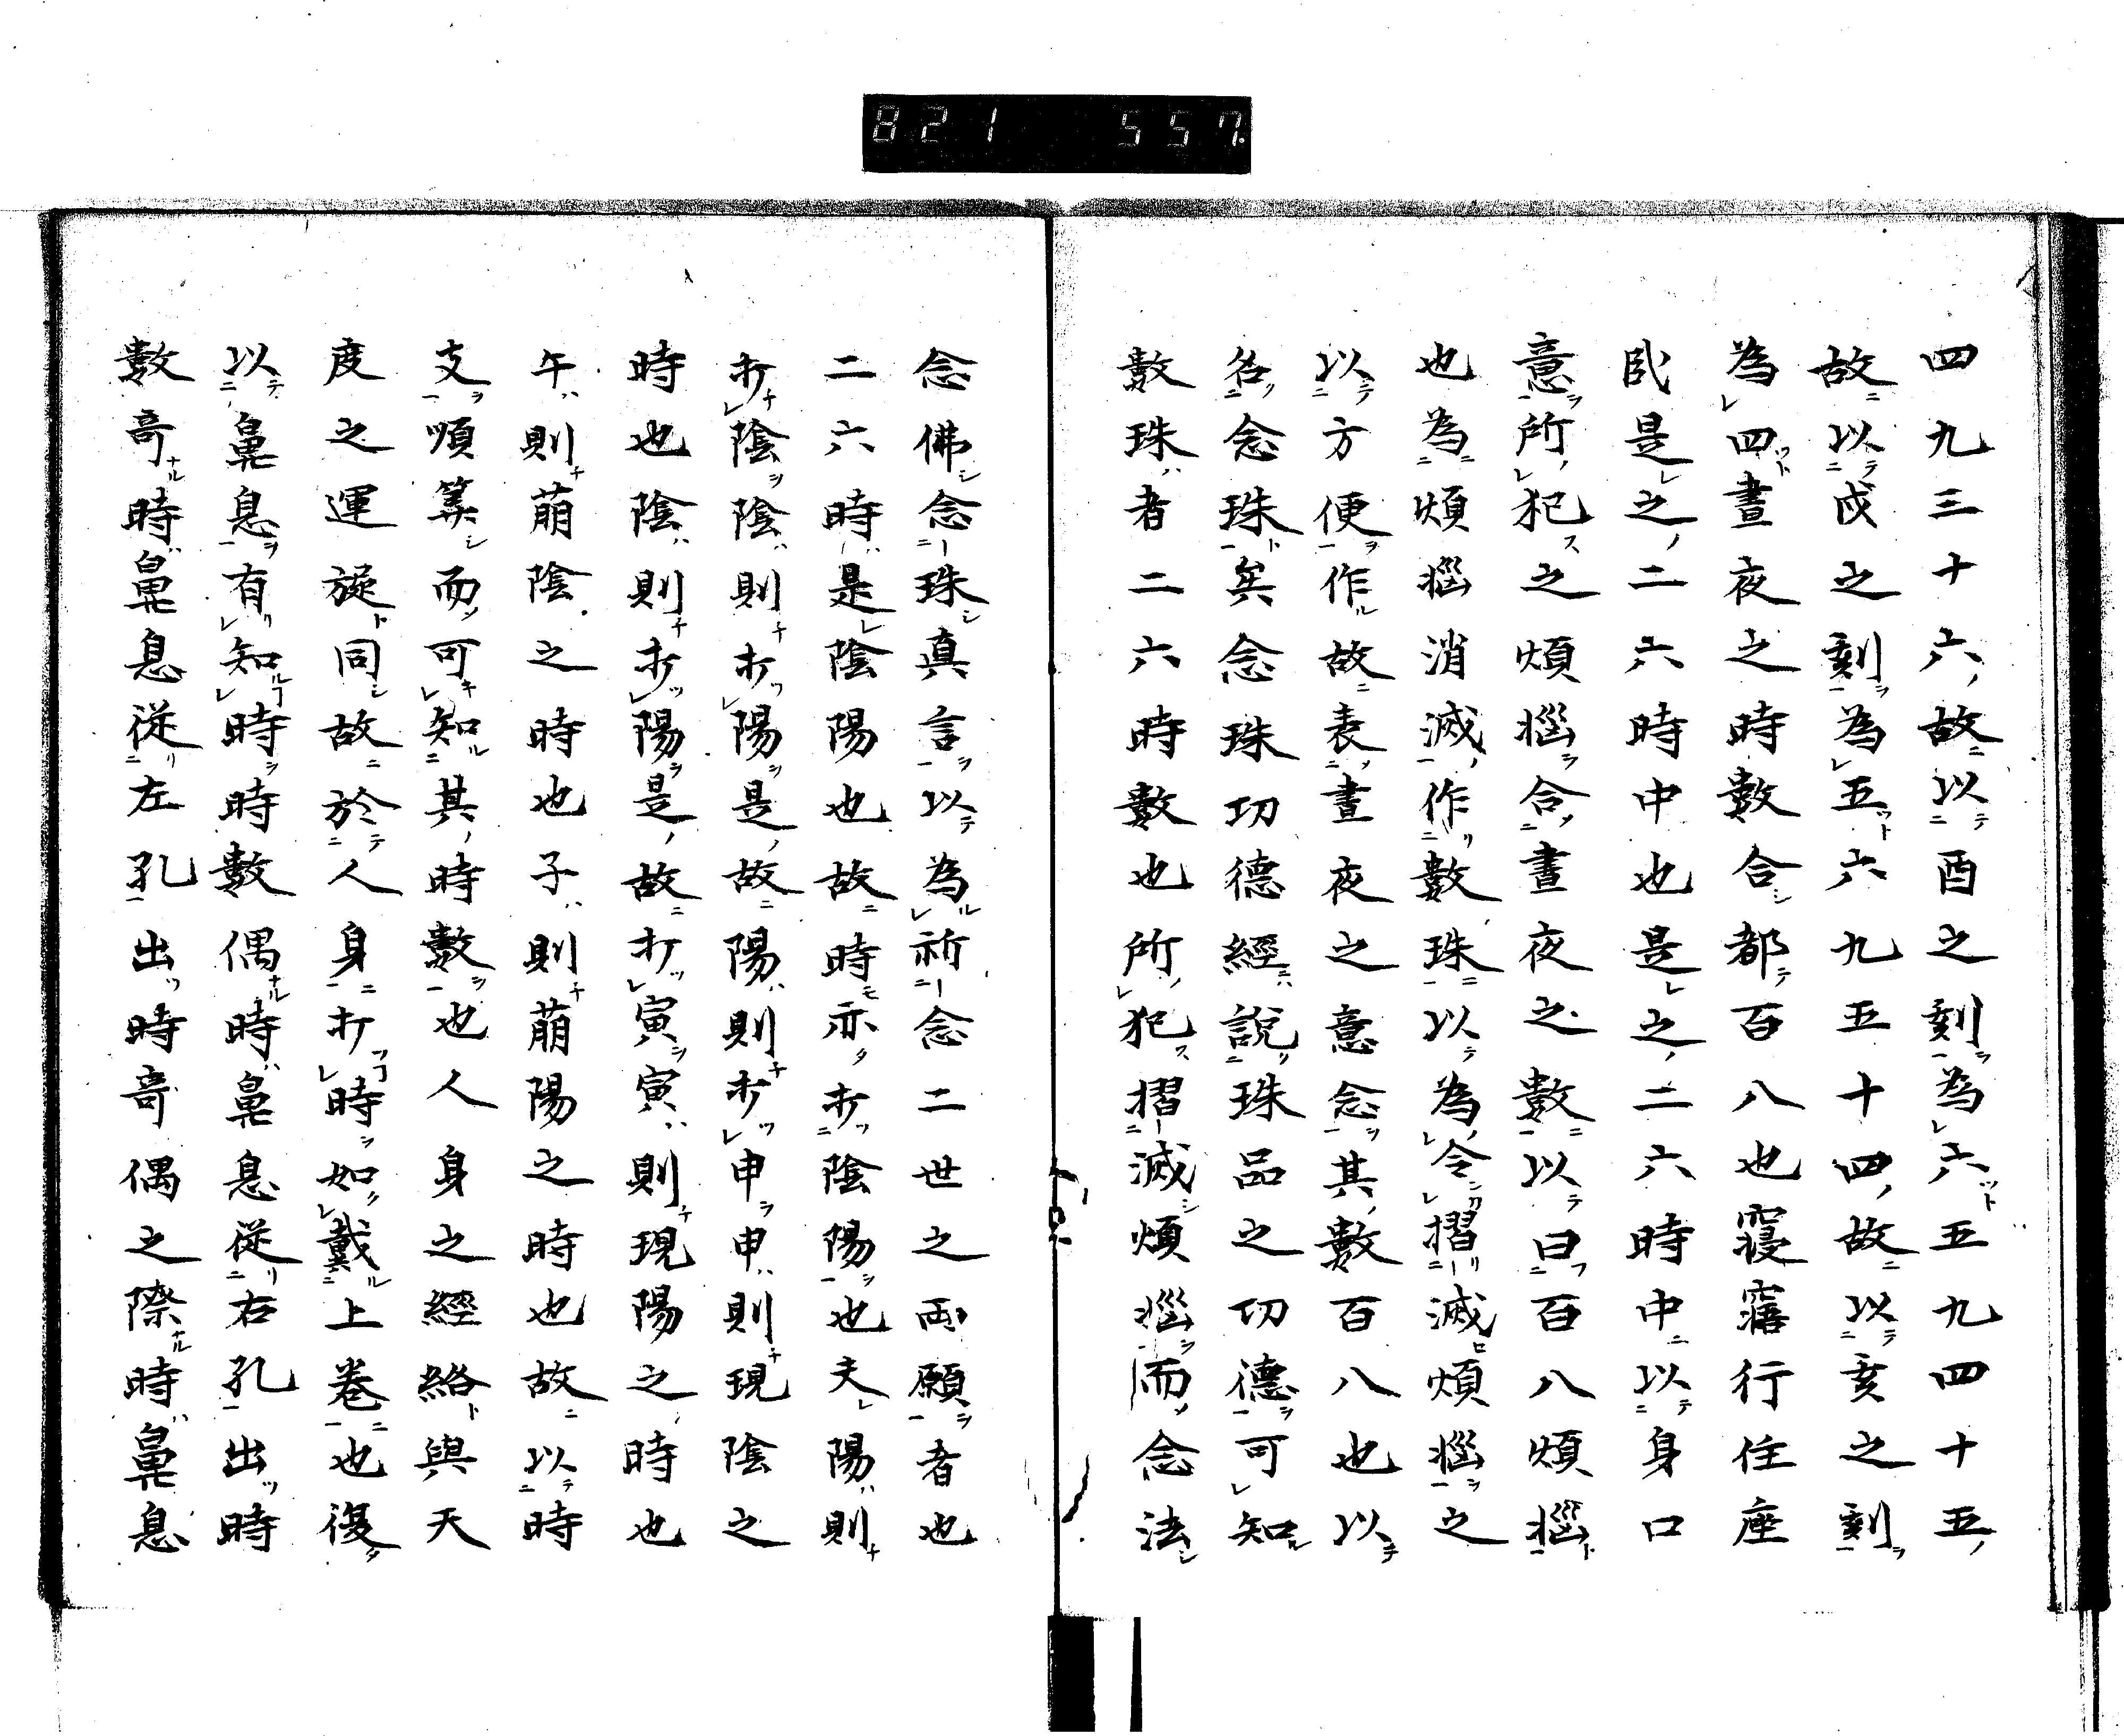 821 557
四九三十六故以酉之刻為六五九四十五
故以戌之刻為五六九五十四故以亥之刻
為四晝夜之時數合都百八也寢寤行住座
臥是之二六時中也是之二六時中以身口
意所犯之煩惱合晝夜之數以曰百八煩惱
也為煩惱消滅作數珠以為令摺滅煩惱之
以方便作故表晝夜之意念其數百八也以
名念珠矣念珠功德經說珠品之功德可知
數珠者二六時數也所犯摺滅煩惱而念法
念佛念珠真言以為祈念二世之両願者也
二六時是陰陽也故時亦打陰陽也夫陽則
打陰陰則打陽是故陽則打申申則現陰之
時也陰則打陽是故打寅寅則現陽之時也
午則萠陰之時也子則萠陽之時也故以時
支順筭而可知其時數也人身之經絡與天
度之運旋同故於人身打時如戴上卷也復
以鼻息有知時時數偶時鼻息從右孔出時
數竒時鼻息從左孔出時竒偶之際時鼻息